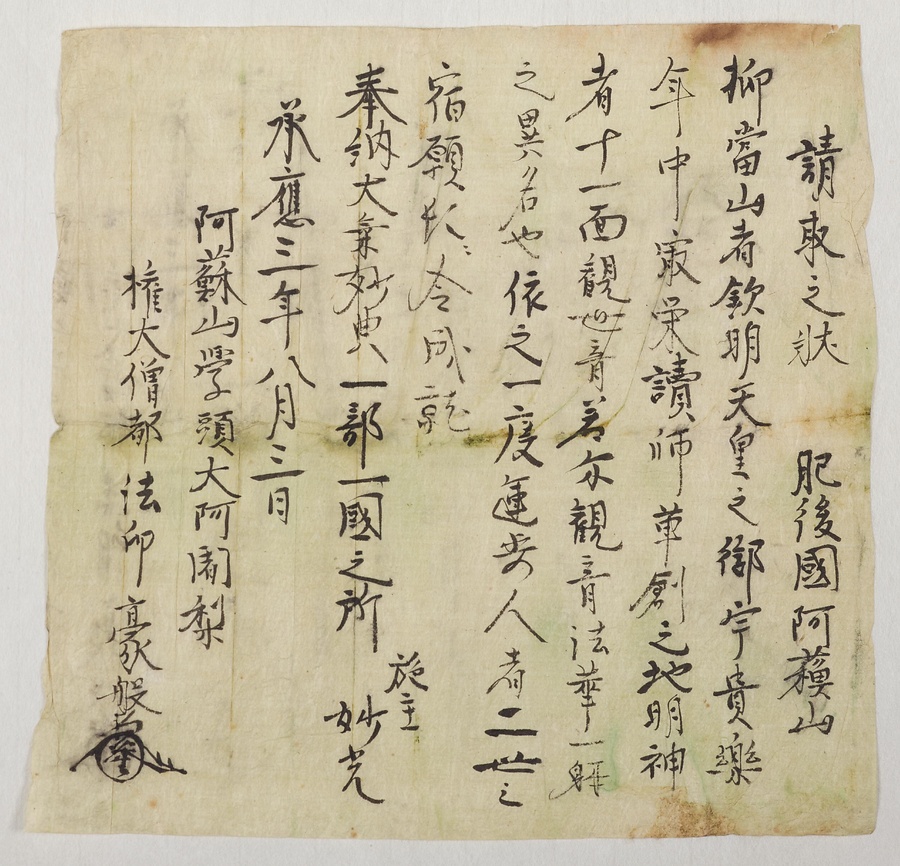 請取之状　肥後國阿蘓山
抑當山者欽明天皇之御宇貴樂
年中㝡栄讀師草創之地明神
者十一面観世音菩薩観音法華一躰
之異名也依之一度運歩人者二世之
宿願忩令成就
奉納大乗妙典一部一國之所
施主 妙光
承應三年八月三日
阿蘇山學頭大阿闍梨
権大僧都法印豪